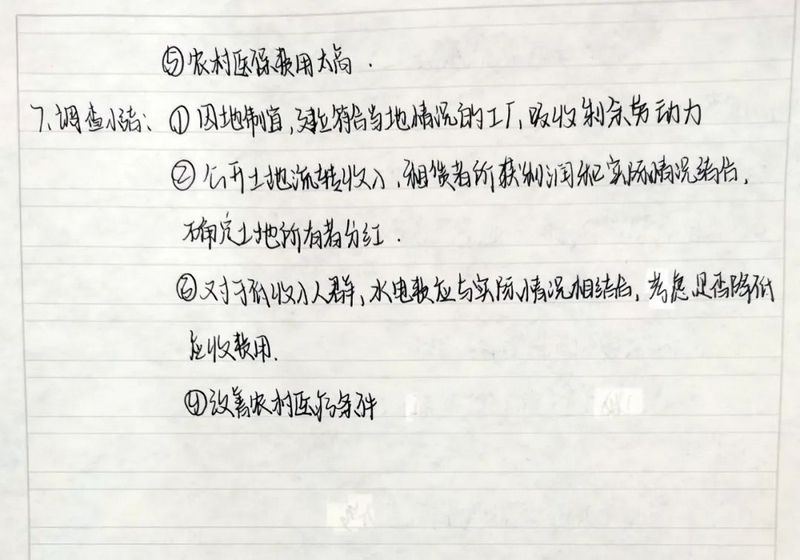 ⑤农村医保费用太高.
7、调查小结：①因地制宜,建立符合当地情况的工厂,吸收剩余劳动力
②公开土地流转收入、租赁者所获利润和实际情况结合,
确定土地所有者分红.
③对于低收入人群,水电费应与实际情况相结合,考虑是否降低
应收费用.
④改善农村医疗条件